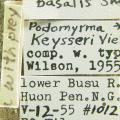 basalis Sm
Podomyrma
Keysseri Vie
comp. w. typ
Wilson, 1955
lower Busu R.
Huon Pen. N.G.
V-12-55 #1012
with prey